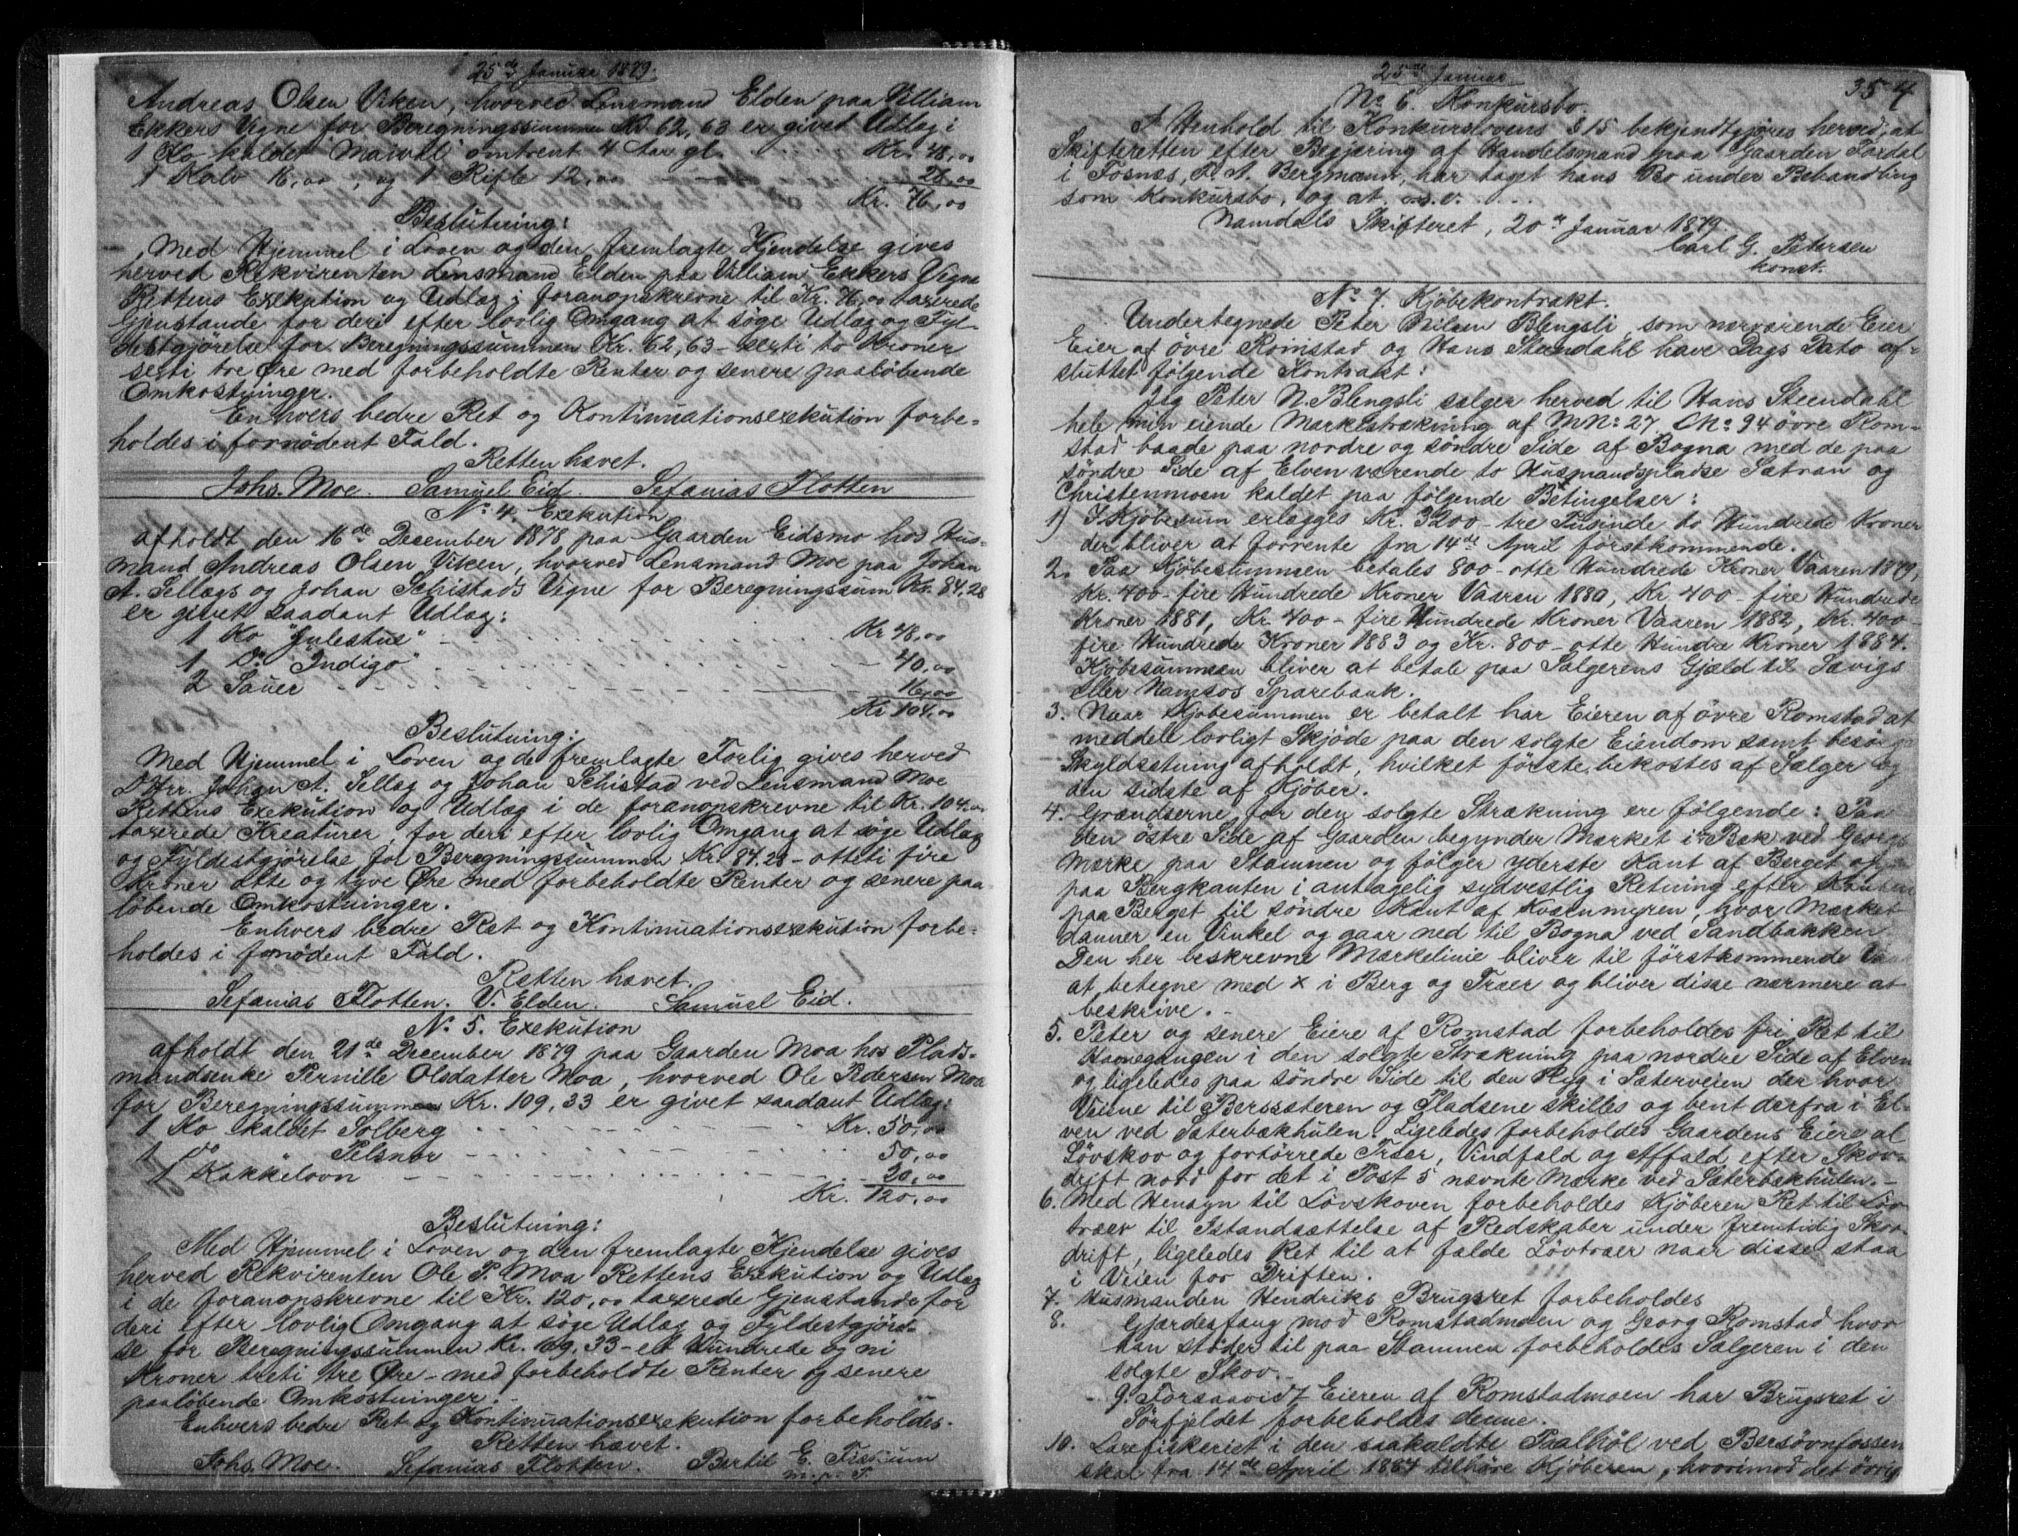 25de Januar 1879.
Andreas Olsen Viken, hvorved Lensmand Elden paa Villiam
Ekkers Vegne for Beregningssummen Kr 62,63 er givet Udlæg i
1 Ko kaldet "Mairos" omtrent 4 Aar gl. . . . . Kr. 48,00
1 Kalv 16,00, og 1 Rifle 12,00 — — — 28,00
Kr. 76,00
Beslutning:
Med Hjemmel i Loven og den fremlagte Kjendelse gives
herved Rekvirenten Lensmand Elden paa Villiam Ekkers Vigne
Rettens Exekution og Udlæg i foranopskrevne til Kr. 76,00 taxerede
Gjenstande for deri efter lovlig Omgang at søge Udlæg og Fyl-
destgjørelse for Beregningssummen Kr. 62,63 - sexti to Kroner
sexti tre Øre med forbeholdte Renter og senere paaløbende
Omkostninger.
Enhvers bedre Ret og Kontinuationsexekution forbe-
holdes i fornödent Fald.
Retten hævet.
Johs. Moe. Samuel Eid. Sefanias Flotten
No 4. Exekution
afholdt den 16de December 1878 paa Gaarden Eidsmo hos Hus-
mand Andreas Olsen Viken, hvorved Lensmand Moe paa Johan
A. Sellægs og Johan Schistads Vigne for Beregningssum Kr. 84.28
er givet saadant Udlæg:
1 Ko "Julestus" - - - Kr 48,00
1 Do "Indigo" - - - 40,00
2 Sauer - - - 16,00
Kr 104,00
Beslutning:
Med Hjemmel i Loven og de fremlagte Forlig gives herved
DHrr. Johan A. Sellæg og Johan Schistad ved Lensmand Moe
Rettens Exekution og Udlæg i de foranopskrevne til Kr. 104.00
taxerede Kreaturer for deri efter lovlig Omgang at søge Udlæg
og Fyldestgjørelse for Beregningssummen Kr. 84.28 - otteti fire
Kroner otte og tyve Øre med forbeholdte Renter og senere paa
løbende Omkostninger.
Enhvers bedre Ret og Kontinuationsexekution forbe-
holdes i fornødent Fald.
Retten hævet.
Sefanias Flotten. V. Elden. Samuel Eid.
No. 5. Exekution
afholdt den 21de December 1879 paa Gaarden Moa hos Plads-
mandsenke Pernille Olsdatter Moa, hvorved Ole Pedersen Moa
for Beregningssummen Kr. 109,33 er givet saadant Udlæg:
1 Ko kaldet Solberg - - - Kr. 50,00
1 do " Pelsnor - - - 50,00
1 Kakkelovn - - - 20,00
Kr. 120,00
Beslutning:
Med Hjemmel i Loven og den fremlagte Kjendelse gives
herved Rekvirenten Ole P. Moa Rettens Exekution og Udlæg
i de foranopskrevne til Kr. 120,00 taxerede Gjenstande for
deri efter lovlig Omgang at søge Udlæg og Fyldestgjørel-
se for Beregningssummen Kr. 109,33 - et Hundrede og ni
Kroner treti tre Øre - med forbeholdte Renter og senere
paaløbende Omkostninger.
Enhvers bedre Ret og Kontinuationsexekution forbeholdes.
Retten hævet.
Johs. Moe. Sefanias Flotten. Bertil E. Fiskum
m. p. P.
25de Januar
354
No 6. Konkursbo.
I Henhold til Konkurslovens § 15 bekjendtgjøres herved, at
Skifteretten efter Begjæring af Handelsmand paa Gaarden Fardal
i Fosnæs, P. A. Bergmann, har taget hans Bo under Behandling
som Konkursbo, og at o. s. v. . . . .
Namdals Skifteret, 20de Januar 1879
Carl G. Petersen
konst.
No. 7. Kjöbekontrakt.
Undertegnede Peter Nilsen Blengsli, som nærværende Eier
Eier af övre Romstad og Hans Steendahl have Dags Dato af-
sluttet følgende Kontrakt:
Jeg Peter N. Blengsli sælger herved til Hans Steendahl
hele min eiende Markstrækning af MNo. 27 LNo. 94 övre Rom-
stad baade paa nordre og søndre Side af Bogna med de paa
søndre Side af Elven værende to Husmandspladse Sætran og
Christenmoen kaldet paa følgende Betingelser:
1) I Kjøbesum erlægges Kr. 3200 - tre Tusinde to Hundrede Kroner
der bliver at forrente fra 14de April førstkommende.
2. Paa Kjøbesummen betales 800 - otte Hundrede Kroner Vaaren 1879,
Kr. 400 - fire Hundrede Kroner Vaaren 1880, Kr 400 - fire Hundrede
Kroner 1881, Kr. 400 - fire Hundrede Kroner Vaaren 1882, Kr. 400 -
fire Hundrede Kroner 1883 og Kr. 800 - otte Hundre Kroner 1884.
Kjøbesummen bliver at betale paa Sælgerens Gjæld til Sævigs
eller Namsos Sparebank.
3. Naar Kjøbesummen er betalt har Eieren af övre Romstad at
meddele lovligt Skjøde paa den solgte Eiendom samt besörge
Skyldsætning afholdt, hvilket første bekostes af Sælger og
den sidste af Kjøber.
4. Grændserne for den solgte Strækning ere følgende: Paa
den östre Side af Gaarden begynder Mærket i Bæk ved Georgs
Mærke paa Stamnen og følger yderste Kant af Berget og
paa Bergkanten i antagelig sydvestlig Retning efter Kanten
paa Berget til søndre Kant af Kværnmyren, hvor Mærket
danner en Vinkel og gaar ned til Bogna ved Sandbakken
Den her beskrevne Mærkelinie bliver til førstkommende Vaar
at betegne med x i Berg og Træer og bliver disse nærmere at
beskrive. -
5. Peter og senere Eiere af Romstad forbeholdes fri Ret til
Havnegangen i den solgte Strækning paa nordre Side af Elven
og ligeledes paa søndre Side til den Ryg i Sæterveien der hvor
Veiene til Berssæteren og Pladsene skilles og bent derfra i El-
ven ved Sæterbækhulen. Ligeledes forbeholdes Gaardens Eiere al
Løvskov og fortørrede Træer, Vindfald og Affald efter Skov-
drift nord for det i Post 5 nævnte Mærke ved Sæterbækhulen. -
6. Med Hensyn til Løvskoven forbeholdes Kjøberen Ret til Løv-
træer til Istandsættelse af Redskaber under fremtidig Skov-
drift, ligeledes Ret til at fælde Løvtræer naar disse staa
i Veien for Driften.
7. Husmanden Hendriks Brugsret forbeholdes
8. Gjærdesfang mod Romstadmoen og Georg Romstad hvor
han støder til paa Stamnen forbeholdes Sælgeren i den
solgte Skov. -
9. Forsaavidt Eieren af Romstadmoen har Brugsret i
Sørfjeldet forbeholdes denne.
10. Laxefiskeriet i den saakaldte Paalhöl ved Bersøvnfossen
skal fra 14de April 1884 tilhöre Kjøberen, hvorimod det övrige